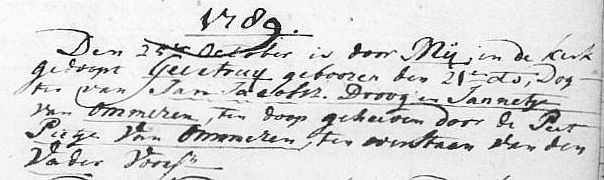 1789.
Den 25ste October is door Mij, in de Kerk
gedoopt Geertruy gebooren den 21e do, Dog
ter van Jan Jacobsz. Droog en Jannetje
van Ommeren, ten doop geheeven door de Pet
Pietje van Ommeren, ten overstaan van den
Vader voorsz